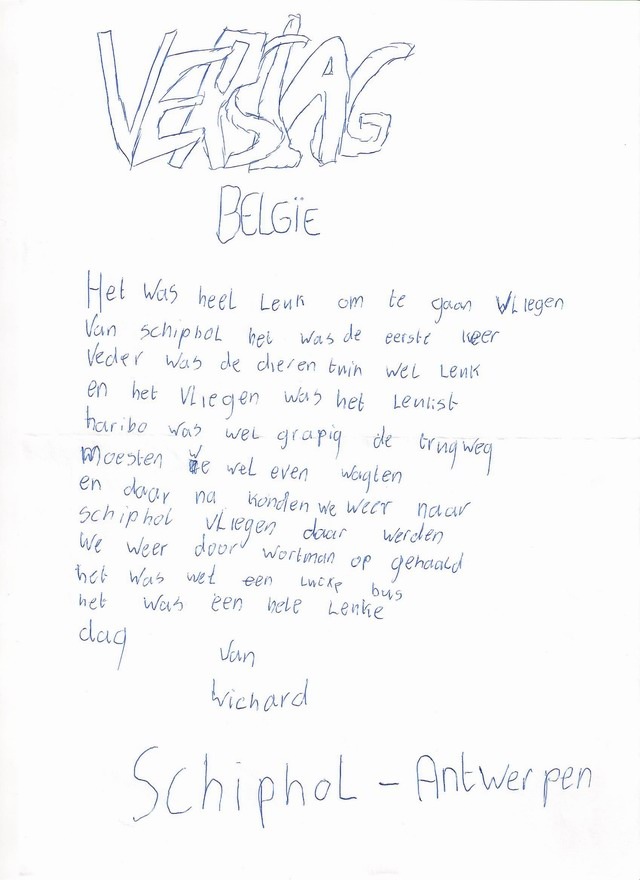 VERSLAG
BELGÏE
Het was heel leuk om te gaan vliegen
van schiphol het was de eerste keer
veder was de dieren tuin wel leuk
en het vliegen was het leukst
haribo was wel grapig de trugweg
moesten we wel even wagten
en daar na konden we weer naar
schiphol vliegen daar werden
we weer door wortman op gehaald
het was wel een lucke bus
het was een hele leuke
dag
van
Wichard
Schiphol - Antwerpen